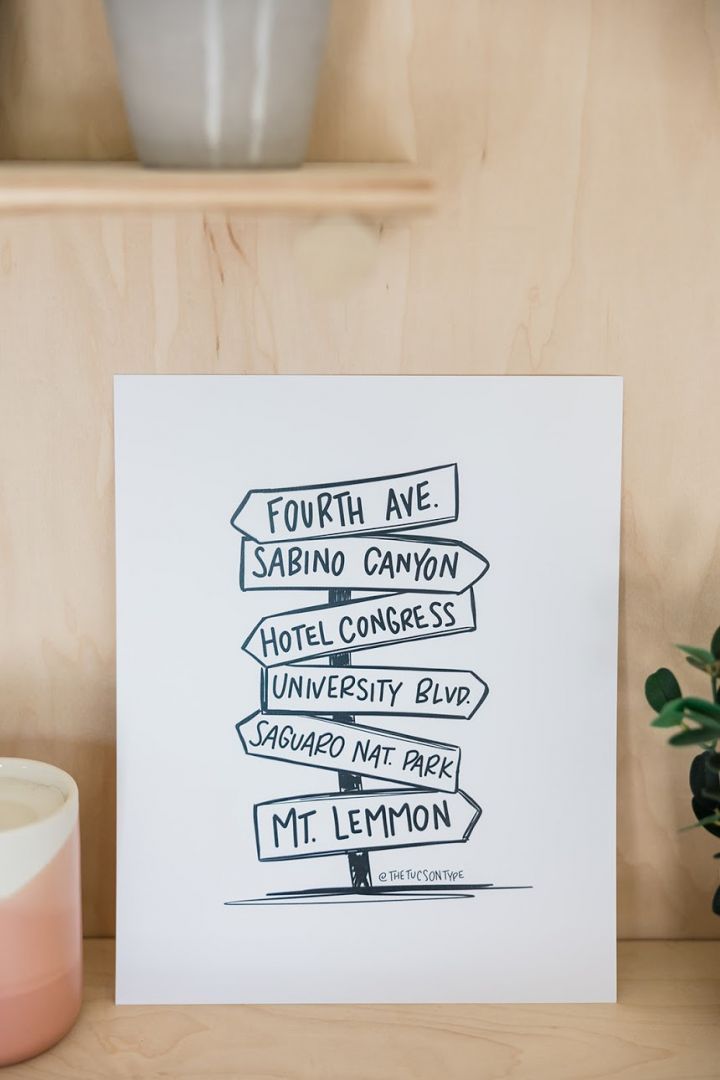 FOURTH AVE.
SABINO CANYON
HOTEL CONGRESS
UNIVERSITY BLVD.
SAGUARO NAT. PARK
MT. LEMMON
@THETUCSONTYPE